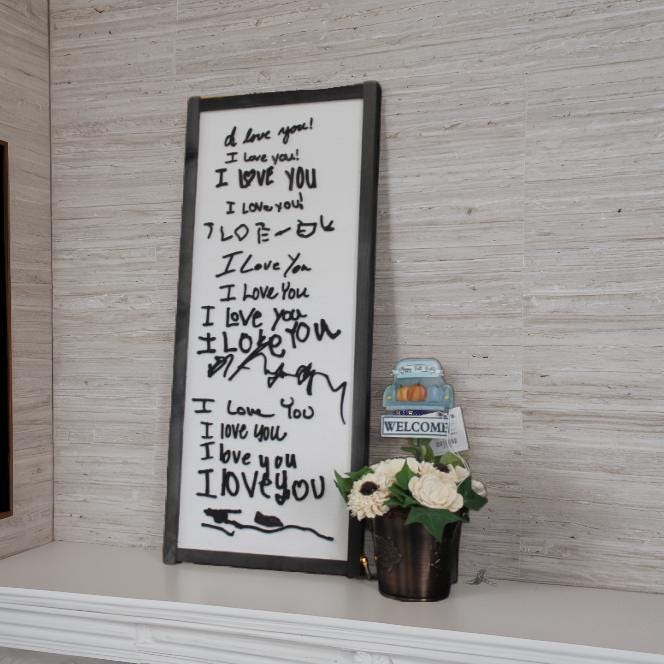 I love you!
I love you!
I LOVE YOU
I LOVE you!
I Love You
I Love You
I Love you
I LOVE YOU
I Love You
I love you
I love you
I love you
WELCOME